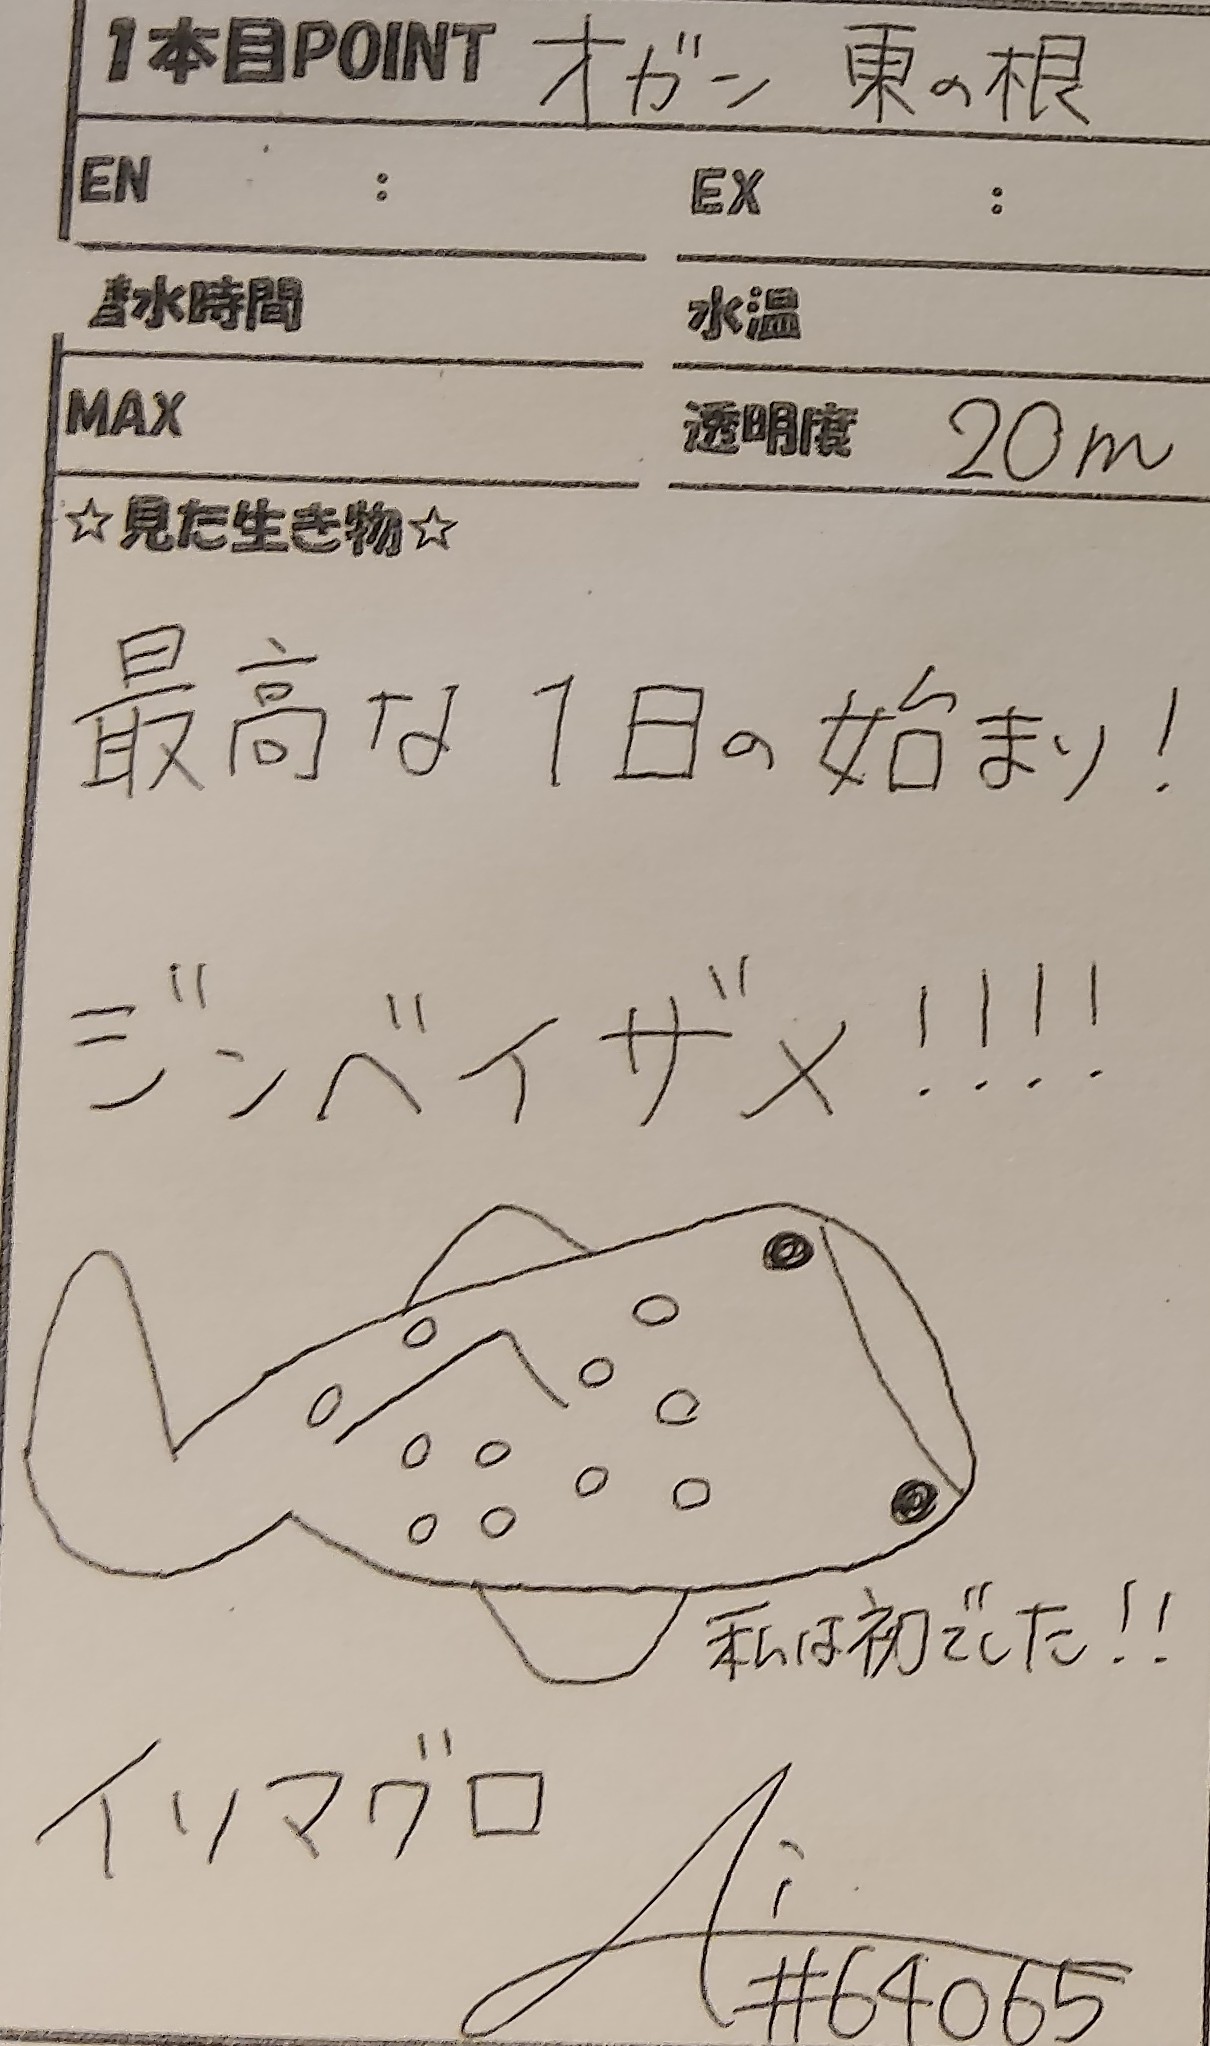 1本目POINT オガン 東の根
EN : EX :
潜水時間 水温
MAX 透明度 20m
☆見た生き物☆
最高な1日の始まり!
ジンベイザメ!!!!
私は初でした!!
イソマグロ
Ai
#64065